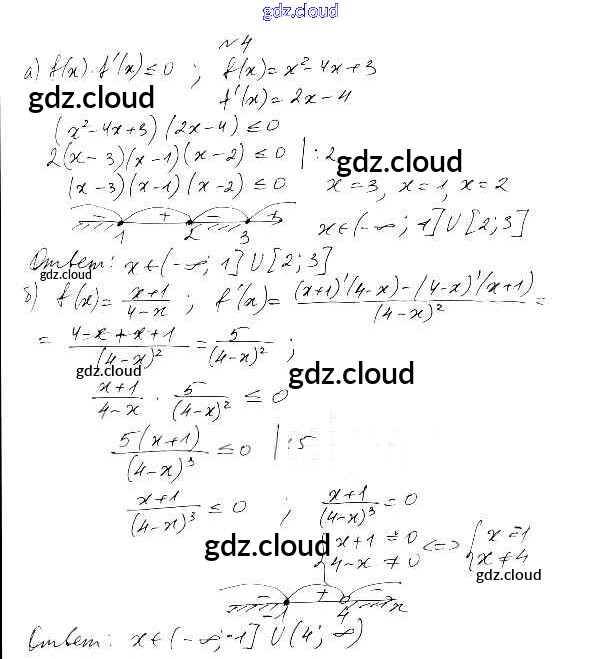 gdz.cloud
N4
а) f(x)·f'(x)≤0 ; f(x)=x²-4x+3
gdz.cloud f'(x)=2x-4
(x²-4x+3)(2x-4)≤0
2(x-3)(x-1)(x-2)≤0 |:2 gdz.cloud
(x-3)(x-1)(x-2)≤0 x=3, x=1, x=2
- + - +
1 2 3 x∈(-∞; 1]∪[2;3]
Ответ: x∈(-∞; 1]∪[2;3]
gdz.cloud
б) f(x)=(x+1)/(4-x) ; f'(x)=((x+1)'(4-x)-(4-x)'(x+1))/(4-x)² =
= (4-x+x+1)/(4-x)² = 5/(4-x)² ;
gdz.cloud gdz.cloud
(x+1)/(4-x) · 5/(4-x)² ≤ 0
5(x+1)/(4-x)³ ≤0 |:5
(x+1)/(4-x)³ ≤0 ; (x+1)/(4-x)³=0
gdz.cloud {x+1=0 <=> {x=-1
{4-x≠0 {x≠4
gdz.cloud
- + -
-1 4 x
Ответ: x∈(-∞;-1]∪(4;∞)